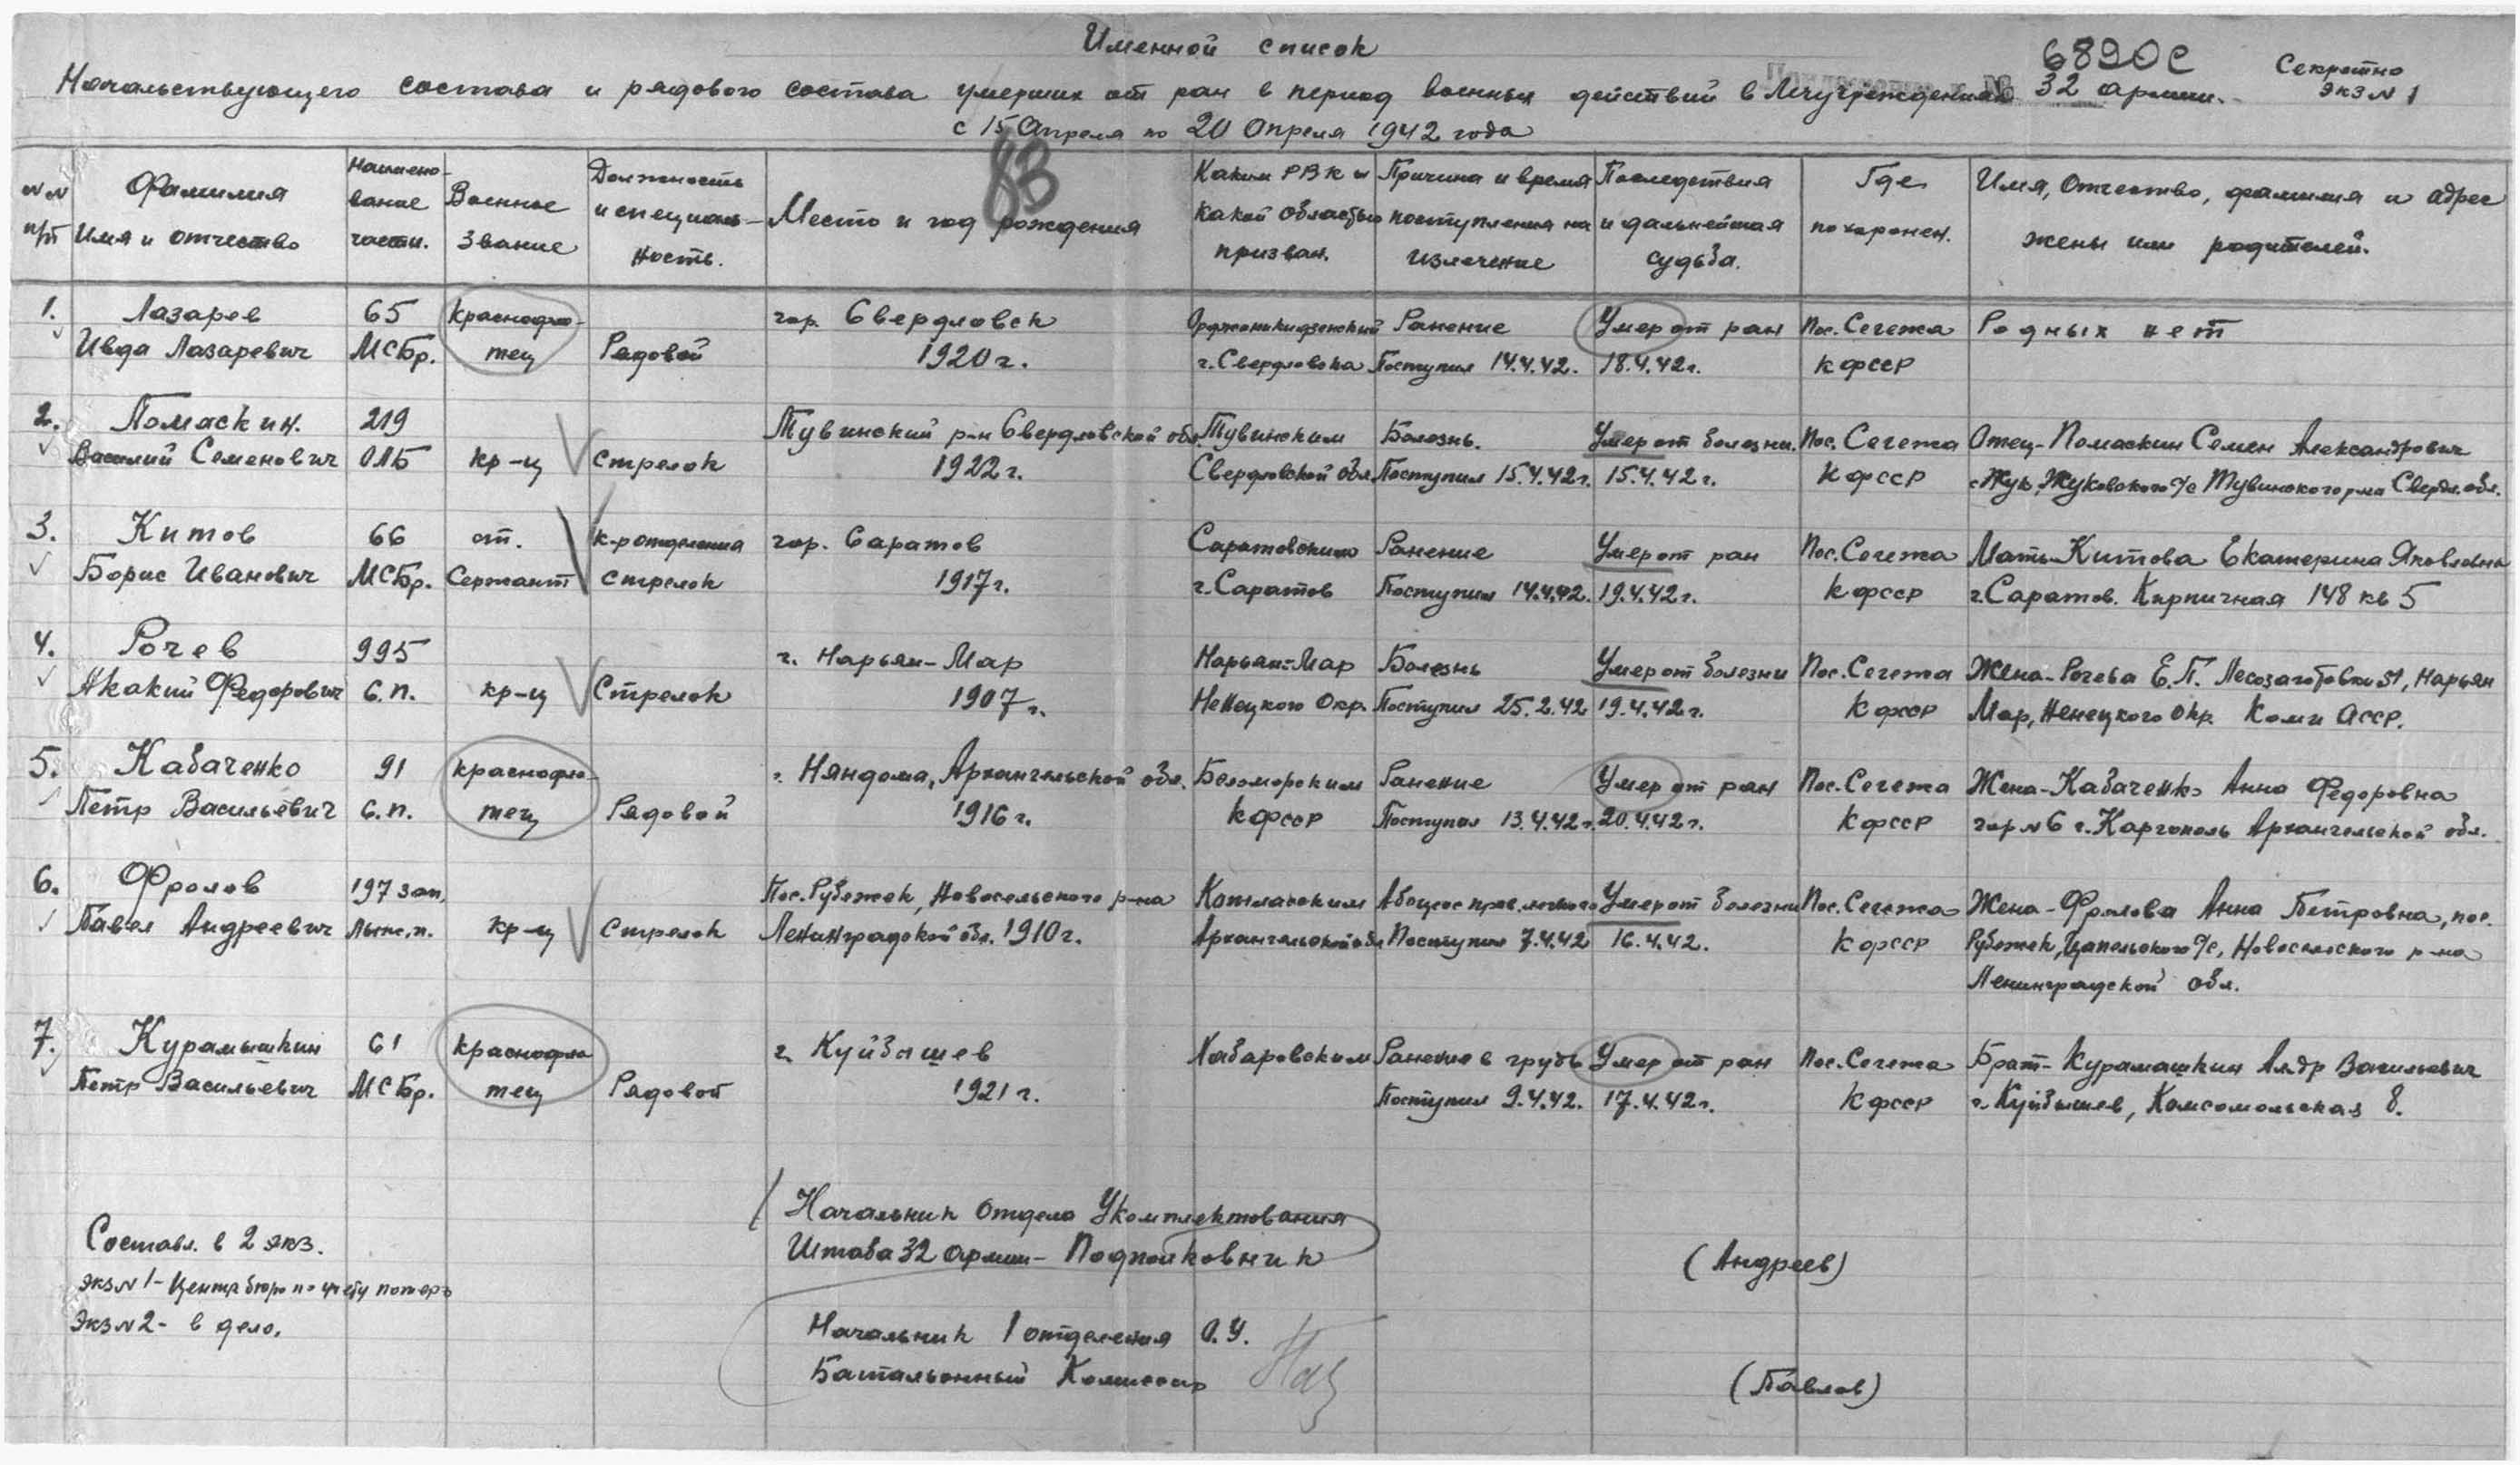 Именной список
6890с
Секретно
Экз N 1
Начальствующего состава и рядового состава умерших от ран в период военных действий в Лечучреждениях 32 армии.
с 15 Апреля по 20 Апреля 1942 года
83
NN п/п
Фамилия Имя и отчество
Наимено- вание части.
Военное Звание
Должность и специаль- ность.
Место и год рождения
Каким РВК и какой областью призван.
Причина и время поступления на излечение
Последствия и дальнейшая судьба.
Где похоронен.
Имя, Отчество, фамилия и адрес жены или родителей.
1. Лазарев 65 Краснофло- гор. Свердловск Орджоникидзенский Ранение Умер от ран Пос. Сегежа Родных нет
Ивда Лазаревич МСБр. тец Рядовой 1920 г. г. Свердловска Поступил 14.4.42. 18.4.42 г. КФССР
2. Помаскин. 219 Тувинский р-н Свердловской обл. Тувинским Болезнь. Умер от болезни. Пос. Сегежа Отец - Помаскин Семен Александрович
Василий Семенович ОЛБ кр-ц Стрелок 1922 г. Свердловской обл. Поступил 15.4.42 г. 15.4.42 г. КФССР с Жук, Жуковского с/с Тувинского р-на Свердл. обл.
3. Китов 66 ст. к-р отделения гор. Саратов Саратовским Ранение Умер от ран Пос. Сегежа Мать - Китова Екатерина Яковлевна
Борис Иванович МСБр. Сержант стрелок 1917 г. г. Саратов Поступил 14.4.42. 19.4.42 г. КФССР г. Саратов. Кирпичная 148 кв 5
4. Рочев 995 г. Нарьян-Мар Нарьян-Мар Болезнь Умер от болезни Пос. Сегежа Жена - Рочева Е.П. Лесозаготовки 51, Нарьян
Акакий Федорович С.П. кр-ц Стрелок 1907 г. Ненецкого Окр. Поступил 25.2.42 19.4.42 г. КФССР Мар, Ненецкого Окр. Коми АССР.
5. Кабаченко 91 краснофло- г. Няндома, Архангельской обл. Беломорским Ранение Умер от ран Пос. Сегежа Жена - Кабаченко Анна Федоровна
Петр Васильевич С.П. тец Рядовой 1916 г. КФССР Поступил 13.4.42 г. 20.4.42 г. КФССР N 6 г. Каргополь Архангельской обл.
6. Фролов 197 зап. Пос. Рубежек, Новосельского р-на Котласским Абсцесс прав. легкого Умер от болезни Пос. Сегежа Жена - Фролова Анна Петровна, пос.
Павел Андреевич лыж. п. кр-ц Стрелок Ленинградской обл. 1910 г. Архангельской обл Поступил 7.4.42 16.4.42. КФССР Рубежек, Цапельского с/с, Новосельского р-на
Ленинградской обл.
7. Курамышкин 61 краснофло г. Куйбышев Хабаровским Ранение в грудь Умер от ран Пос. Сегежа Брат - Курамашкин Ал-др Васильевич
Петр Васильевич МСБр. тец Рядовой 1921 г. Поступил 9.4.42. 17.4.42 г. КФССР г. Куйбышев, Комсомольская 8.
Начальник отдела Укомплектования
Штаба 32 Армии - Подполковник (Андреев)
Составл. в 2 экз.
Экз N 1 - Центр бюро по учету потерь
Экз N 2 - в дело.
Начальник 1 отделения О.У.
Батальонный Комиссар (Павлов)